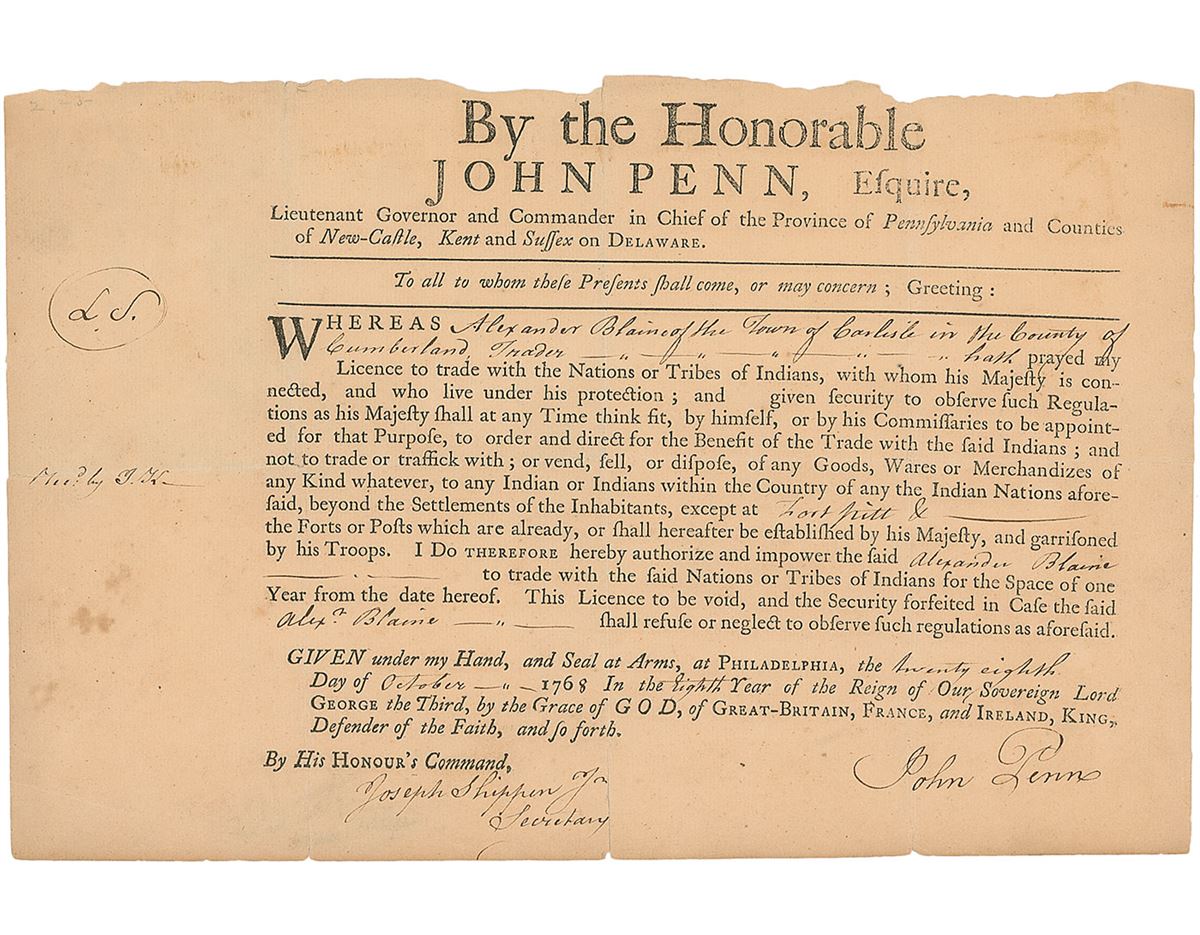 By the Honorable
JOHN PENN, Eſquire,
Lieutenant Governor and Commander in Chief of the Province of Pennſylvania and Counties
of New-Caſtle, Kent and Suſſex on DELAWARE.
To all to whom theſe Preſents ſhall come, or may concern; Greeting:
L.S.
WHEREAS Alexander Blaine of the Town of Carlisle in the County of
Cumberland, Trader — " — " — " — " — " hath prayed my
Licence to trade with the Nations or Tribes of Indians, with whom his Majeſty is con-
nected, and who live under his protection; and given ſecurity to obſerve ſuch Regula-
tions as his Majeſty ſhall at any Time think fit, by himſelf, or by his Commiſſaries to be appoint-
ed for that Purpoſe, to order and direct for the Benefit of the Trade with the ſaid Indians; and
not to trade or traffick with; or vend, ſell, or diſpoſe, of any Goods, Wares or Merchandizes of
any Kind whatever, to any Indian or Indians within the Country of any the Indian Nations afore-
ſaid, beyond the Settlements of the Inhabitants, except at Fort Pitt &
the Forts or Poſts which are already, or ſhall hereafter be eſtabliſhed by his Majeſty, and garriſoned
by his Troops. I DO THEREFORE hereby authorize and impower the ſaid Alexander Blaine
to trade with the ſaid Nations or Tribes of Indians for the Space of one
Year from the date hereof. This Licence to be void, and the Security forfeited in Caſe the ſaid
Alexr. Blaine — " — ſhall refuſe or neglect to obſerve ſuch regulations as aforeſaid.
GIVEN under my Hand, and Seal at Arms, at PHILADELPHIA, the twenty eighth
Day of October — " — 1768 In the Eighth Year of the Reign of Our Sovereign Lord
GEORGE the Third, by the Grace of GOD, of GREAT-BRITAIN, FRANCE, and IRELAND, KING,
Defender of the Faith, and ſo forth.
By His HONOUR's Command,
Joseph Shippen Jr
Secretary
John Penn